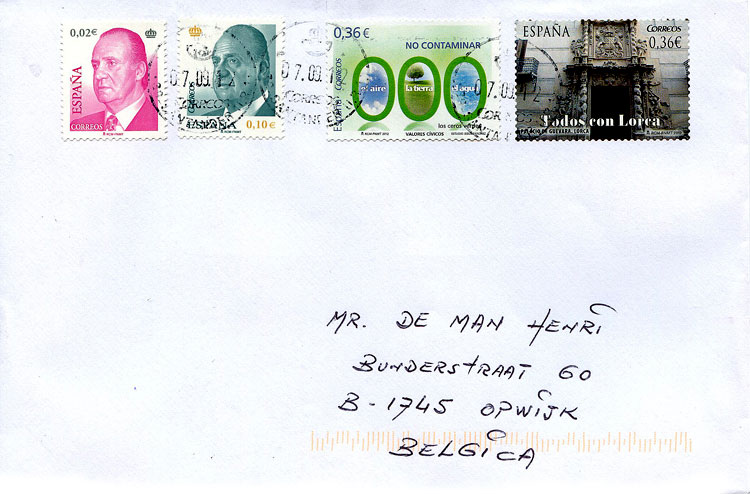 0,02€
ESPAÑA
CORREOS
ESPAÑA
0,10€
0,36€
NO CONTAMINAR
CORREOS
el aire la tierra el agua
VALORES CÍVICOS
ESPAÑA
CORREOS
0,36€
Todos con Lorca
PALACIO DE GUEVARA, LORCA
MR. DE MAN HENRI
BUNDERSTRAAT 60
B-1745 OPWIJK
BELGICA